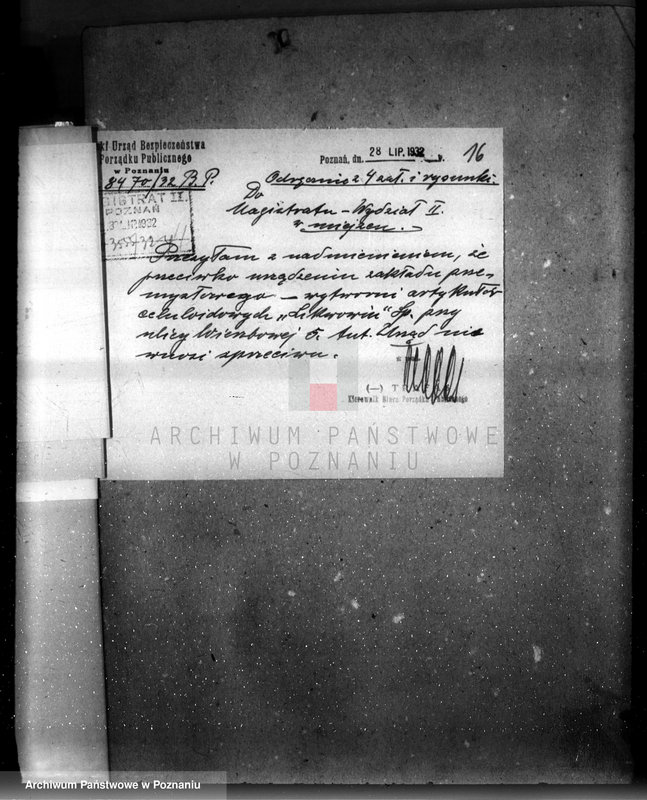 ki Urząd Bezpieczeństwa
Porządku Publicznego
w Poznaniu
Poznań, dn. 28 LIP. 1932 r.
16
8470/32 B.P.
Odręcznie z 4 zał. i rysunki.
MAGISTRAT II.
POZNAŃ
LIP. 1932
Do
Magistratu – Wydział II.
w miejscu.
Przesyłam z nadmienieniem, że
przeciwko urządzeniu zakładu prze-
mysłowego – wytworni artykułów
celuloidowych Sp. przy
ulicy 5. tut. Urząd nie
wnosi sprzeciwu.
(—)
Kierownik Biura Porządku Publicznego
ARCHIWUM PAŃSTWOWE
W POZNANIU
Archiwum Państwowe w Poznaniu